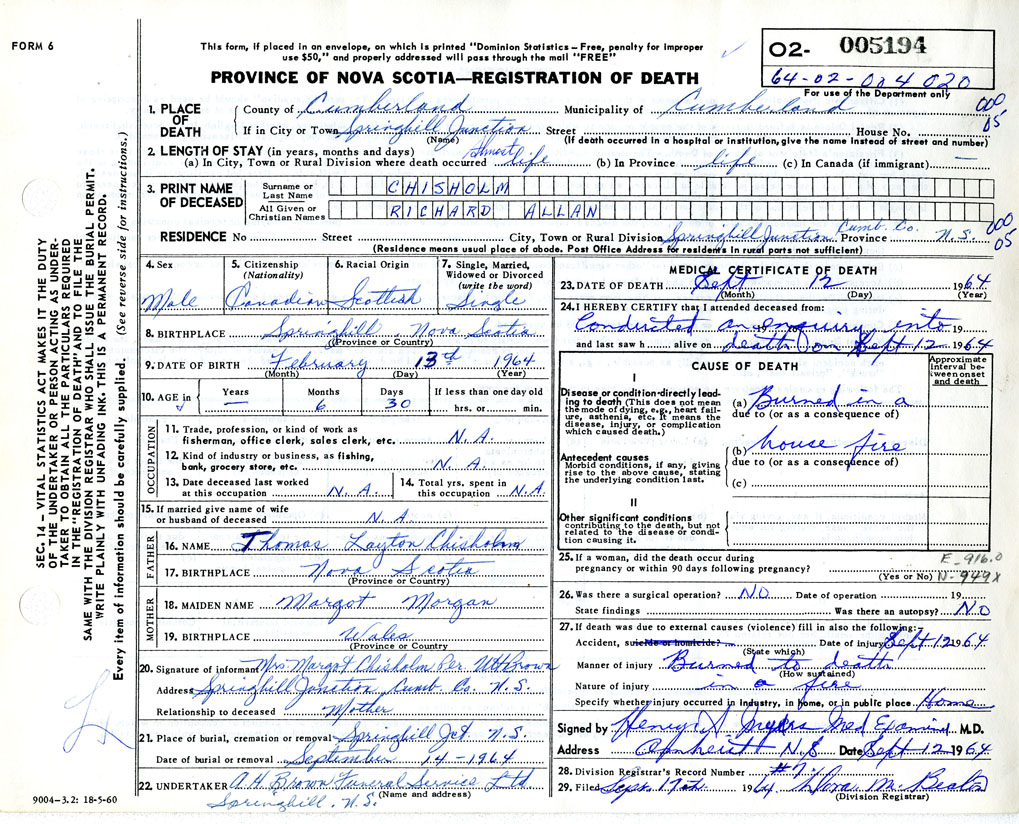 FORM 6
This form, if placed in an envelope, on which is printed "Dominion Statistics – Free, penalty for improper
use $50," and properly addressed will pass through the mail "FREE"
PROVINCE OF NOVA SCOTIA—REGISTRATION OF DEATH
O2- 005194
64-02-004020
For use of the Department only
SEC. 14 – VITAL STATISTICS ACT MAKES IT THE DUTY
OF THE UNDERTAKER OR PERSON ACTING AS UNDER-
TAKER TO OBTAIN ALL THE PARTICULARS REQUIRED
IN THE "REGISTRATION OF DEATH" AND TO FILE THE
SAME WITH THE DIVISION REGISTRAR WHO SHALL ISSUE THE BURIAL PERMIT.
WRITE PLAINLY WITH UNFADING INK. THIS IS A PERMANENT RECORD.
Every item of information should be carefully supplied. (See reverse side for instructions.)
1. PLACE OF DEATH
County of Cumberland Municipality of Cumberland 000
05
If in City or Town Springhill Junction Street House No.
(Name) (If death occurred in a hospital or institution, give the name instead of street and number)
2. LENGTH OF STAY (in years, months and days)
(a) In City, Town or Rural Division where death occurred almost life (b) In Province life (c) In Canada (if immigrant) —
3. PRINT NAME OF DECEASED
Surname or Last Name CHISHOLM
All Given or Christian Names RICHARD ALLAN
RESIDENCE No Street City, Town or Rural Division Springhill Junction Cumb. Co. Province N.S. 000
05
(Residence means usual place of abode. Post Office Address for residents in rural parts not sufficient)
4. Sex Male
5. Citizenship (Nationality) Canadian
6. Racial Origin Scottish
7. Single, Married, Widowed or Divorced (write the word) Single
8. BIRTHPLACE Springhill, Nova Scotia
(Province or Country)
9. DATE OF BIRTH February 13th 1964
(Month) (Day) (Year)
10. AGE in Years — Months 6 Days 30 If less than one day old hrs. or min.
OCCUPATION
11. Trade, profession, or kind of work as
fisherman, office clerk, sales clerk, etc. N. A.
12. Kind of industry or business, as fishing,
bank, grocery store, etc. N. A.
13. Date deceased last worked at this occupation N. A.
14. Total yrs. spent in this occupation N.A.
15. If married give name of wife
or husband of deceased N. A.
FATHER
16. NAME Thomas Layton Chisholm
17. BIRTHPLACE Nova Scotia
(Province or Country)
MOTHER
18. MAIDEN NAME Margot Morgan
19. BIRTHPLACE Wales
(Province or Country
20. Signature of informant Mrs Margot Chisholm Per. Brown
Address Springhill Junction Cumb. Co. N.S.
Relationship to deceased Mother
21. Place of burial, cremation or removal Springhill Jct N.S.
Date of burial or removal September 14 - 1964
22. UNDERTAKER A.H. Brown Funeral Service Ltd
(Name and address)
Springhill. N.S.
9004-3.2: 18-5-60
MEDICAL CERTIFICATE OF DEATH
23. DATE OF DEATH Sept 12 1964
(Month) (Day) (Year)
24. I HEREBY CERTIFY that I attended deceased from:
Conducted an Inquiry into 19
and last saw h alive on death on Sept 12 1964
CAUSE OF DEATH
Approximate Interval between onset and death
I
Disease or condition directly lead-
ing to death (This does not mean
the mode of dying, e.g., heart fail-
ure, asthenia, etc. It means the
disease, injury, or complication
which caused death.)
(a) Burned in a
due to (or as a consequence of)
Antecedent causes
Morbid conditions, if any, giving
rise to the above cause, stating
the underlying condition last.
(b) house fire
due to (or as a consequence of)
(c)
II
Other significant conditions
contributing to the death, but not
related to the disease or condi-
tion causing it.
25. If a woman, did the death occur during
pregnancy or within 90 days following pregnancy?
(Yes or No)
E-916.0
N-949X
26. Was there a surgical operation? NO Date of operation 19
State findings Was there an autopsy? NO
27. If death was due to external causes (violence) fill in also the following:-
Accident, suicide or homicide? Date of injury Sept 12 1964
(State which)
Manner of injury Burned to death
(How sustained)
Nature of injury in a fire
Specify whether injury occurred in industry, in home, or in public place Home
Signed by Henry Myers Med Examiner M.D.
Address Amherst N S Date Sept 12 1964
28. Division Registrar's Record Number
29. Filed Sept. 19th 1964 M. Beaton
(Division Registrar)